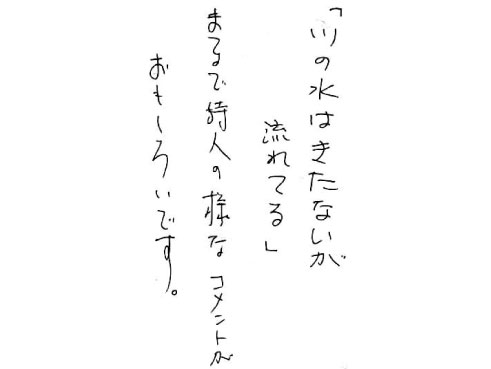 「川の水はきたないが
流れてる」
まるで詩人の様なコメントが
おもしろいです。